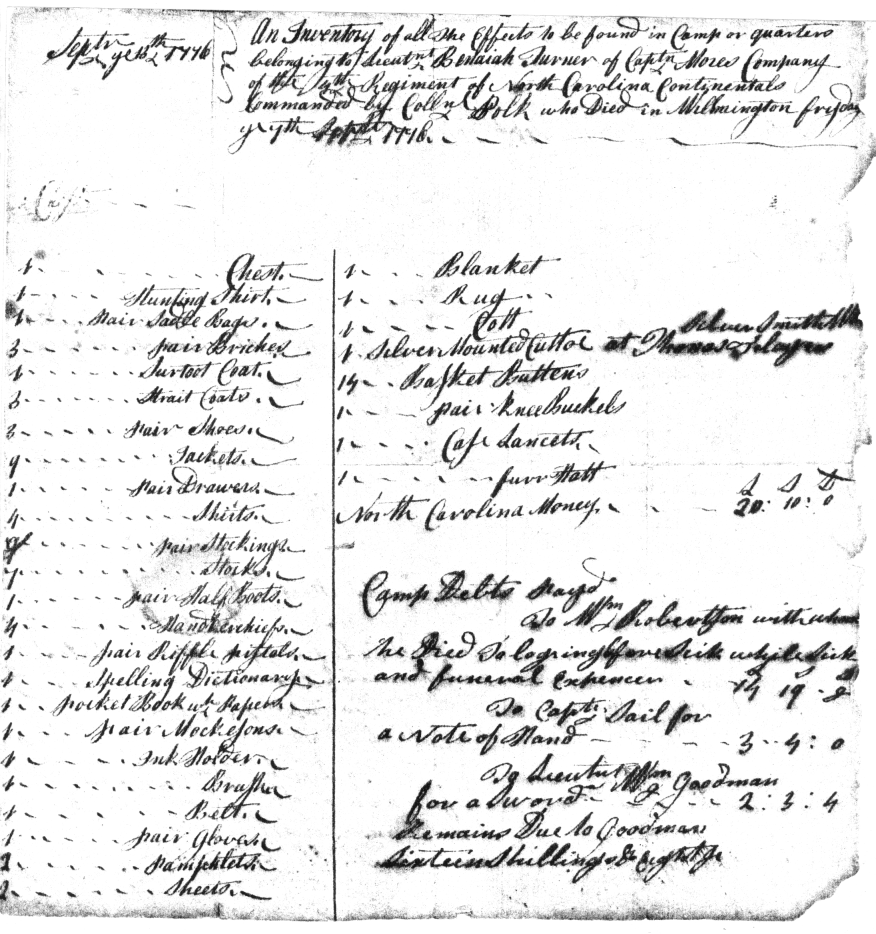 Septr ye 13th 1776
An Inventory of all the Effects to be found in Camp or quarters
belonging to Lieutnt Benaiah Turner of Captn Mores Company
of the 4th Regiment of North Carolina Continentals
Commanded by Collnl Polk who Died in Wilmington fryday
ye 7th Septr 1776.
1 Chest.
1 Hunting Shirt.
1 Pair Sadle Bags.
3 pair Briches
1 Surtoot Coat.
3 Strait Coats.
3 Pair Shoes.
9 Jackets.
1 Pair Drawers.
4 Shirts.
9 pair Stockings
7 Stocks.
1 pair Half Boots.
4 Handkerchiefs.
1 pair Riffle pistols.
1 Spelling Dictionary
1 pocket Book wt Papers.
1 pair Mockesons.
1 Ink Holder.
1 Brush
1 Belt.
1 pair Gloves.
2 Pamphlets.
2 Sheets.
1 Blanket
1 Rug
1 Cott
1 Silver Mounted Cuttoe at Thomas Silver Smith
14 Basket Buttens
1 pair knee Buckels
1 Case Lancets.
1 furr Hatt
L S D
North Carolina Money. 20: 10: 0
Camp Debts payd
To Wm Robertson with whom
he Died To loging before Sick while Sick
and funeral Expences 14 19 - 2
To Captn Sail for
a Note of Hand 3 - 4: 0
To Lieutnt Wm Goodman
for a Sword 2: 3: 4
Remains Due to Goodman
Sixteen Shillings & Eight p